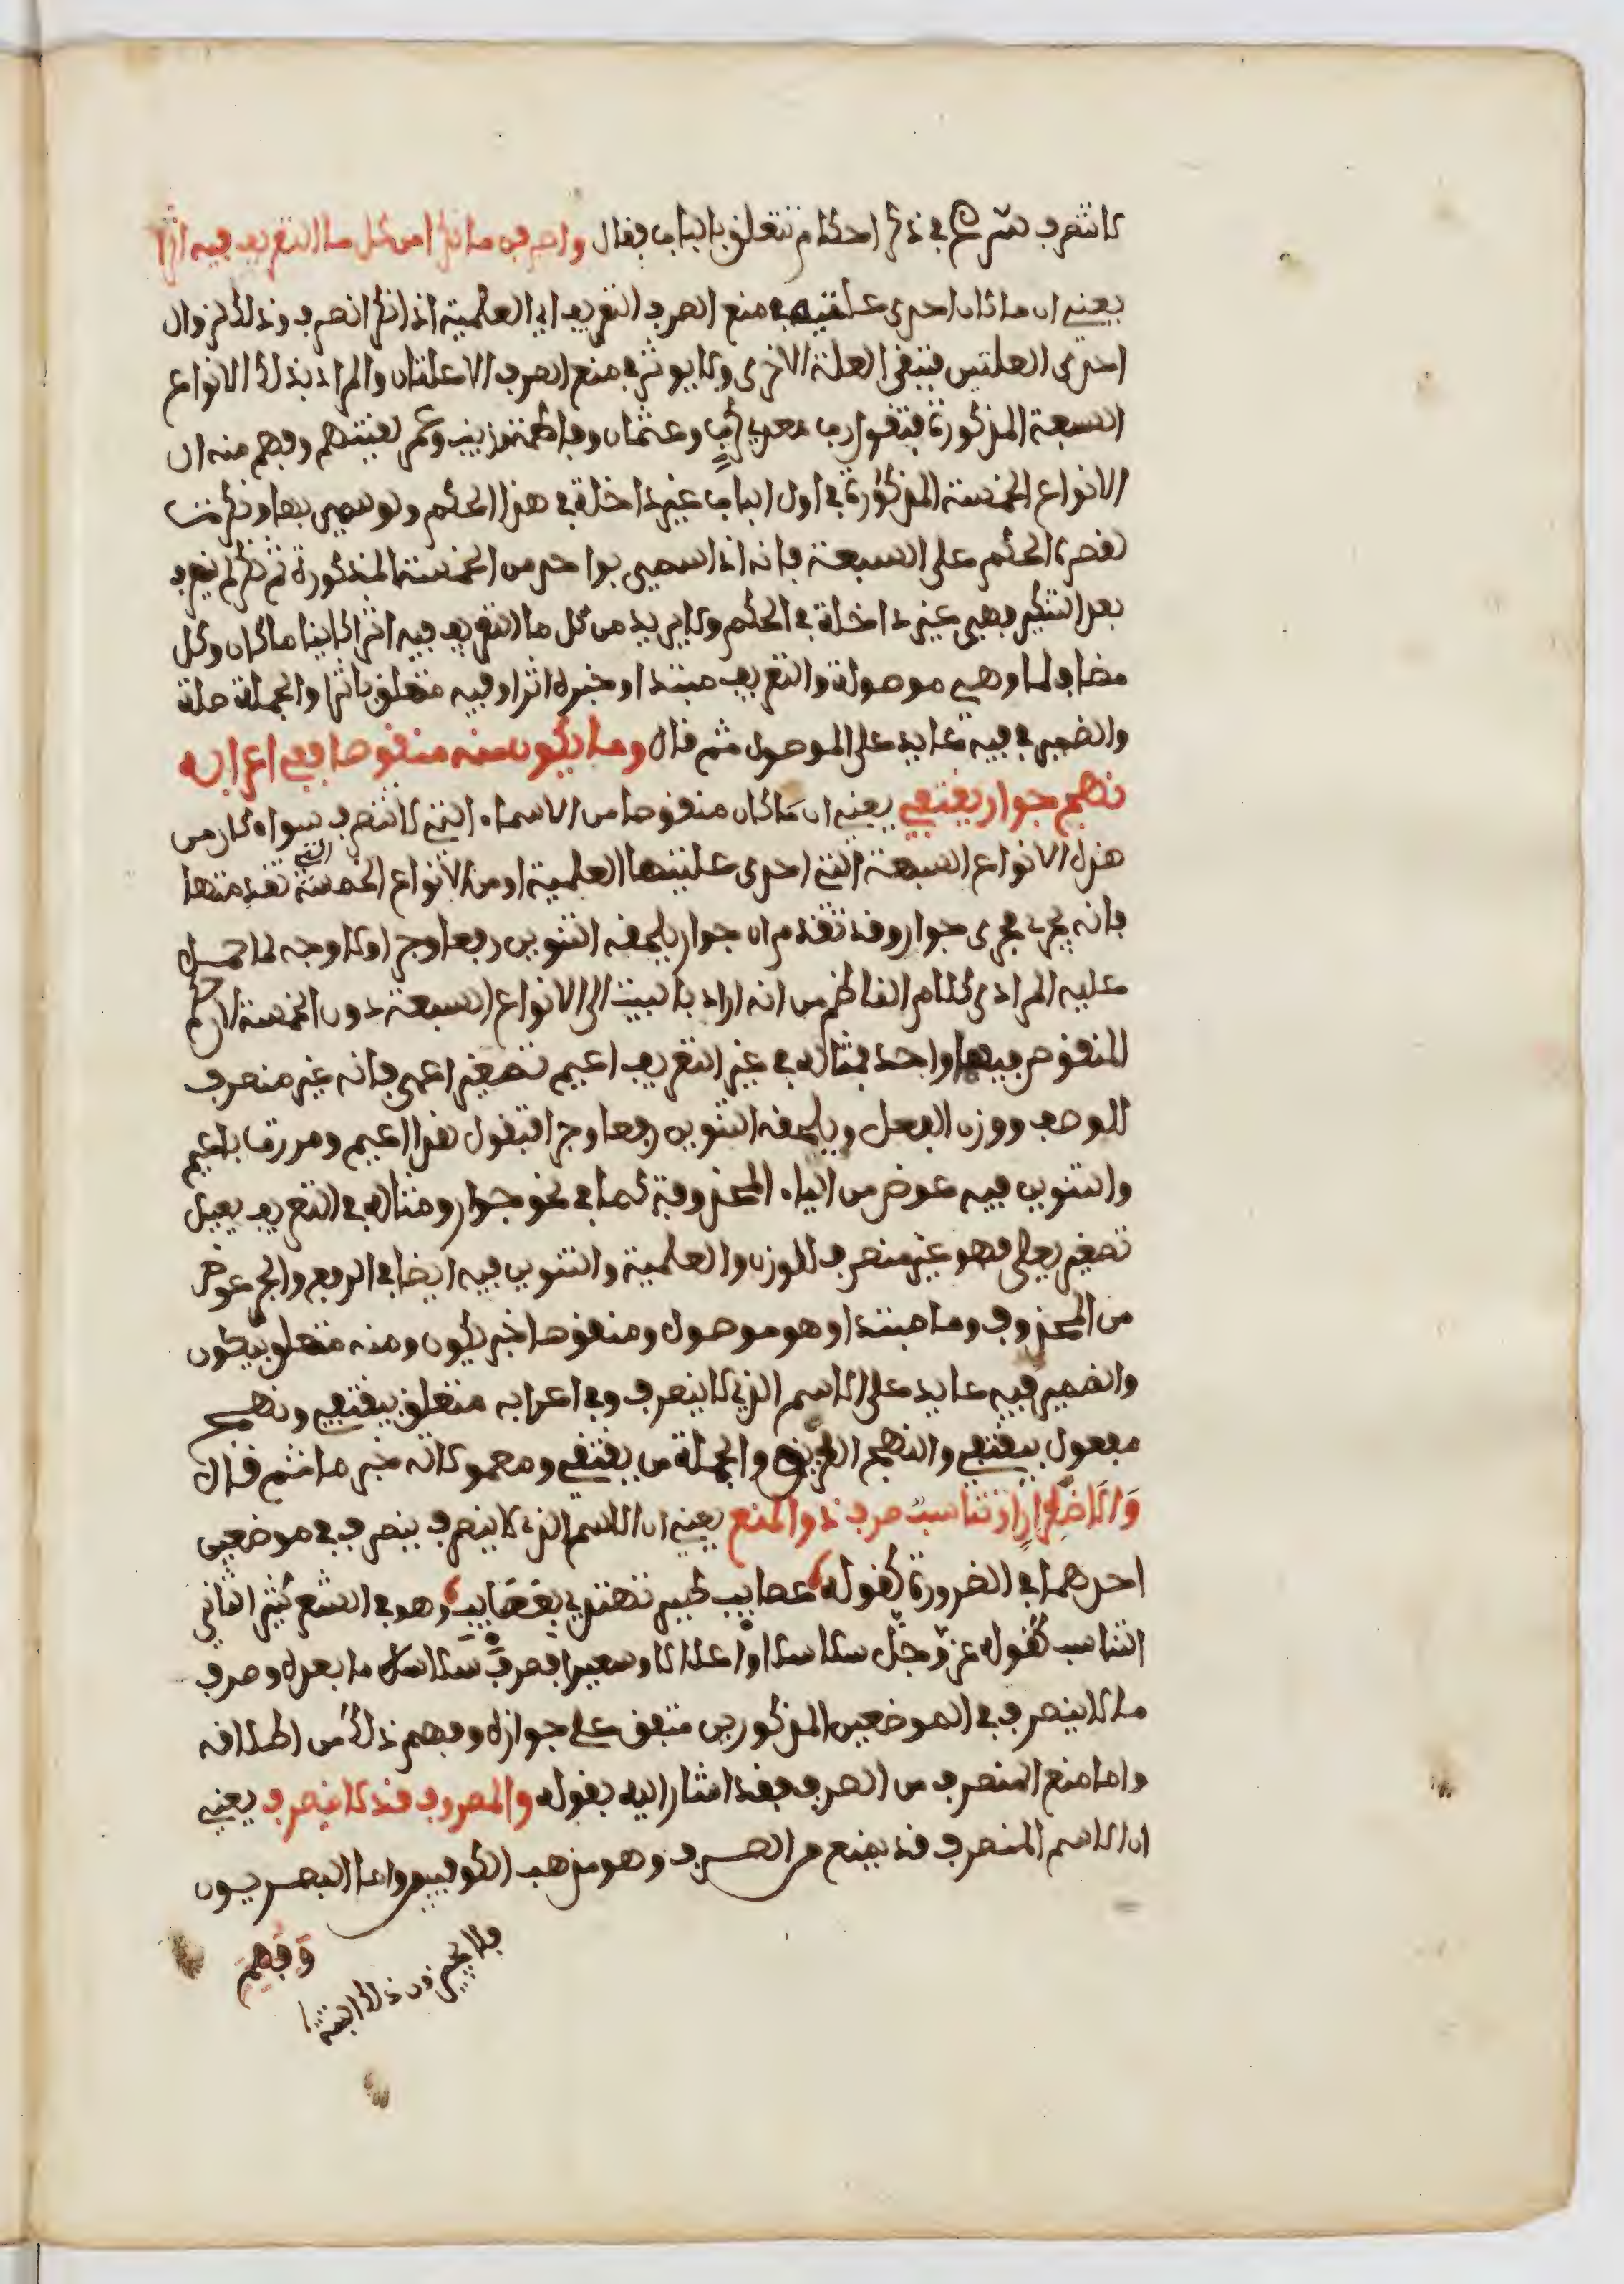 لا تنصرف ثم شرع في ذكر احكام تتعلق بالباب فقال واصرفن ما نكرا من كل ما التعريف فيه اثرا
يعني ان ما كان احدى علتيه في منع الصرف التعريف اي العلمية اذا نكر انصرف وذلك لزوال
احدى العلتين فتبقى العلة الاخرى ولا يوثر في منع الصرف الا علتان والمراد بذلك الانواع
السبعة المذكورة فتقول رب معدي كرب وعثمان وفاطمة وزينب وعمر لقيتهم وفهم منه ان
الانواع الخمسة المذكورة في اول الباب غير داخلة في هذا الحكم ولو سمي بها ونكرت
لقصره الحكم على السبعة فانه اذا سمي بواحد من الخمسة المذكورة ثم نكر لم ينصرف
بعد التنكير فهي غير داخلة في الحكم ولا يريد من كل ما التعريف فيه اثر كاينا ما كان وكل
مضاف لما وهي موصولة والتعريف مبتدا وخبره اثرا وفيه متعلق باثرا والجملة صلة
والضمير في فيه عايد على الموصول ثم قال وما يكون منه منقوصا ففي اعرابه
نهج جوار يقتفي يعني ان ما كان منقوصا من الاسماء التي لا تنصرف سواء كان من
هذه الانواع السبعة التي احدى علتيها العلمية او من الانواع الخمسة التي تقدمتها
فانه يجرى مجرى جوار وقد تقدم ان جوار يلحقه التنوين رفعا وجرا ولا وجه لما حمل
عليه المرادي كلام الناظم من انه اراد بالبيت الى الانواع السبعة دون الخمسة لان حكم
المنقوص فيهما واحد فمثاله في غير التعريف اعيم تصغير اعمى فانه غير منصرف
للوصف ووزن الفعل ويلحقه التنوين رفعا وجرا فتقول هذا اعيم ومررت باعيم
والتنوين فيه عوض من الياء المحذوفة كما في نحو جوار ومثاله في التعريف يعيل
تصغير يعلى فهو غير منصرف للوزن والعلمية والتنوين فيه ايضا في الرفع والجر عوض
من المحذوف وما مبتدا وهو موصول ومنقوصا خبر يكون ومنه متعلق بيكون
والضمير فيه عايد على الاسم الذي لا ينصرف وفي اعرابه متعلق بيقتفي ونهج
مفعول بيقتفي والنهج الطريق والجملة من يقتفي ومعمولاته خبر ما ثم قال
ولاضطرار او تناسب صرف ذو المنع يعني ان الاسم الذي لا ينصرف ينصرف في موضعين
احدهما في الضرورة كقوله عصايب طير تهتدي بعصايب وهو في الشعر كثير الثاني
التناسب كقوله عز وجل سلاسلا واغلالا وسعيرا فصرف سلاسلا ما بعده وصرف
ما لا ينصرف في الموضعين المذكورين متفق على جوازه وفهم ذلك من اطلاقه
واما منع المنصرف من الصرف فقد اشار اليه بقوله والمصروف قد لا ينصرف يعني
ان الاسم المنصرف قد يمنع من الصرف وهو مذهب الكوفيين واما البصريون
فلا يجيزون ذلك البتة
وفهم